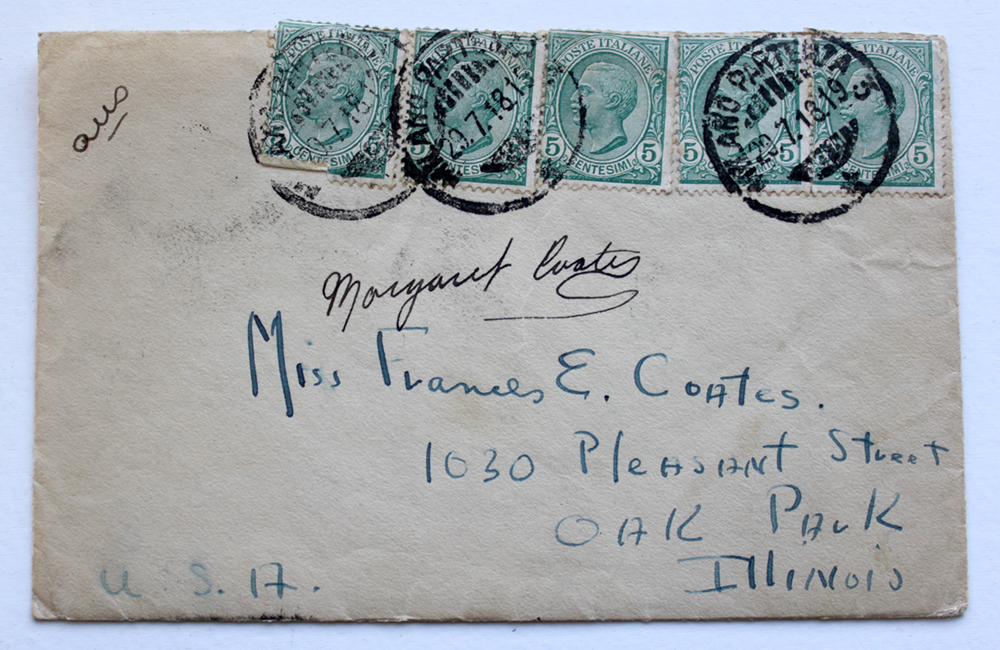 POSTE ITALIANE POSTE ITALIANE POSTE ITALIANE POSTE ITALIANE ITALIANE
5 CENTESIMI 5 5 CENTESIMI 5 CENTESIMI 5 5 5 5
MILANO PARTENZA 5
29.7.18.19
ans
Margaret Coates
Miss Frances E. Coates.
1030 Pleasant Street
Oak Park
Illinois
U.S.A.